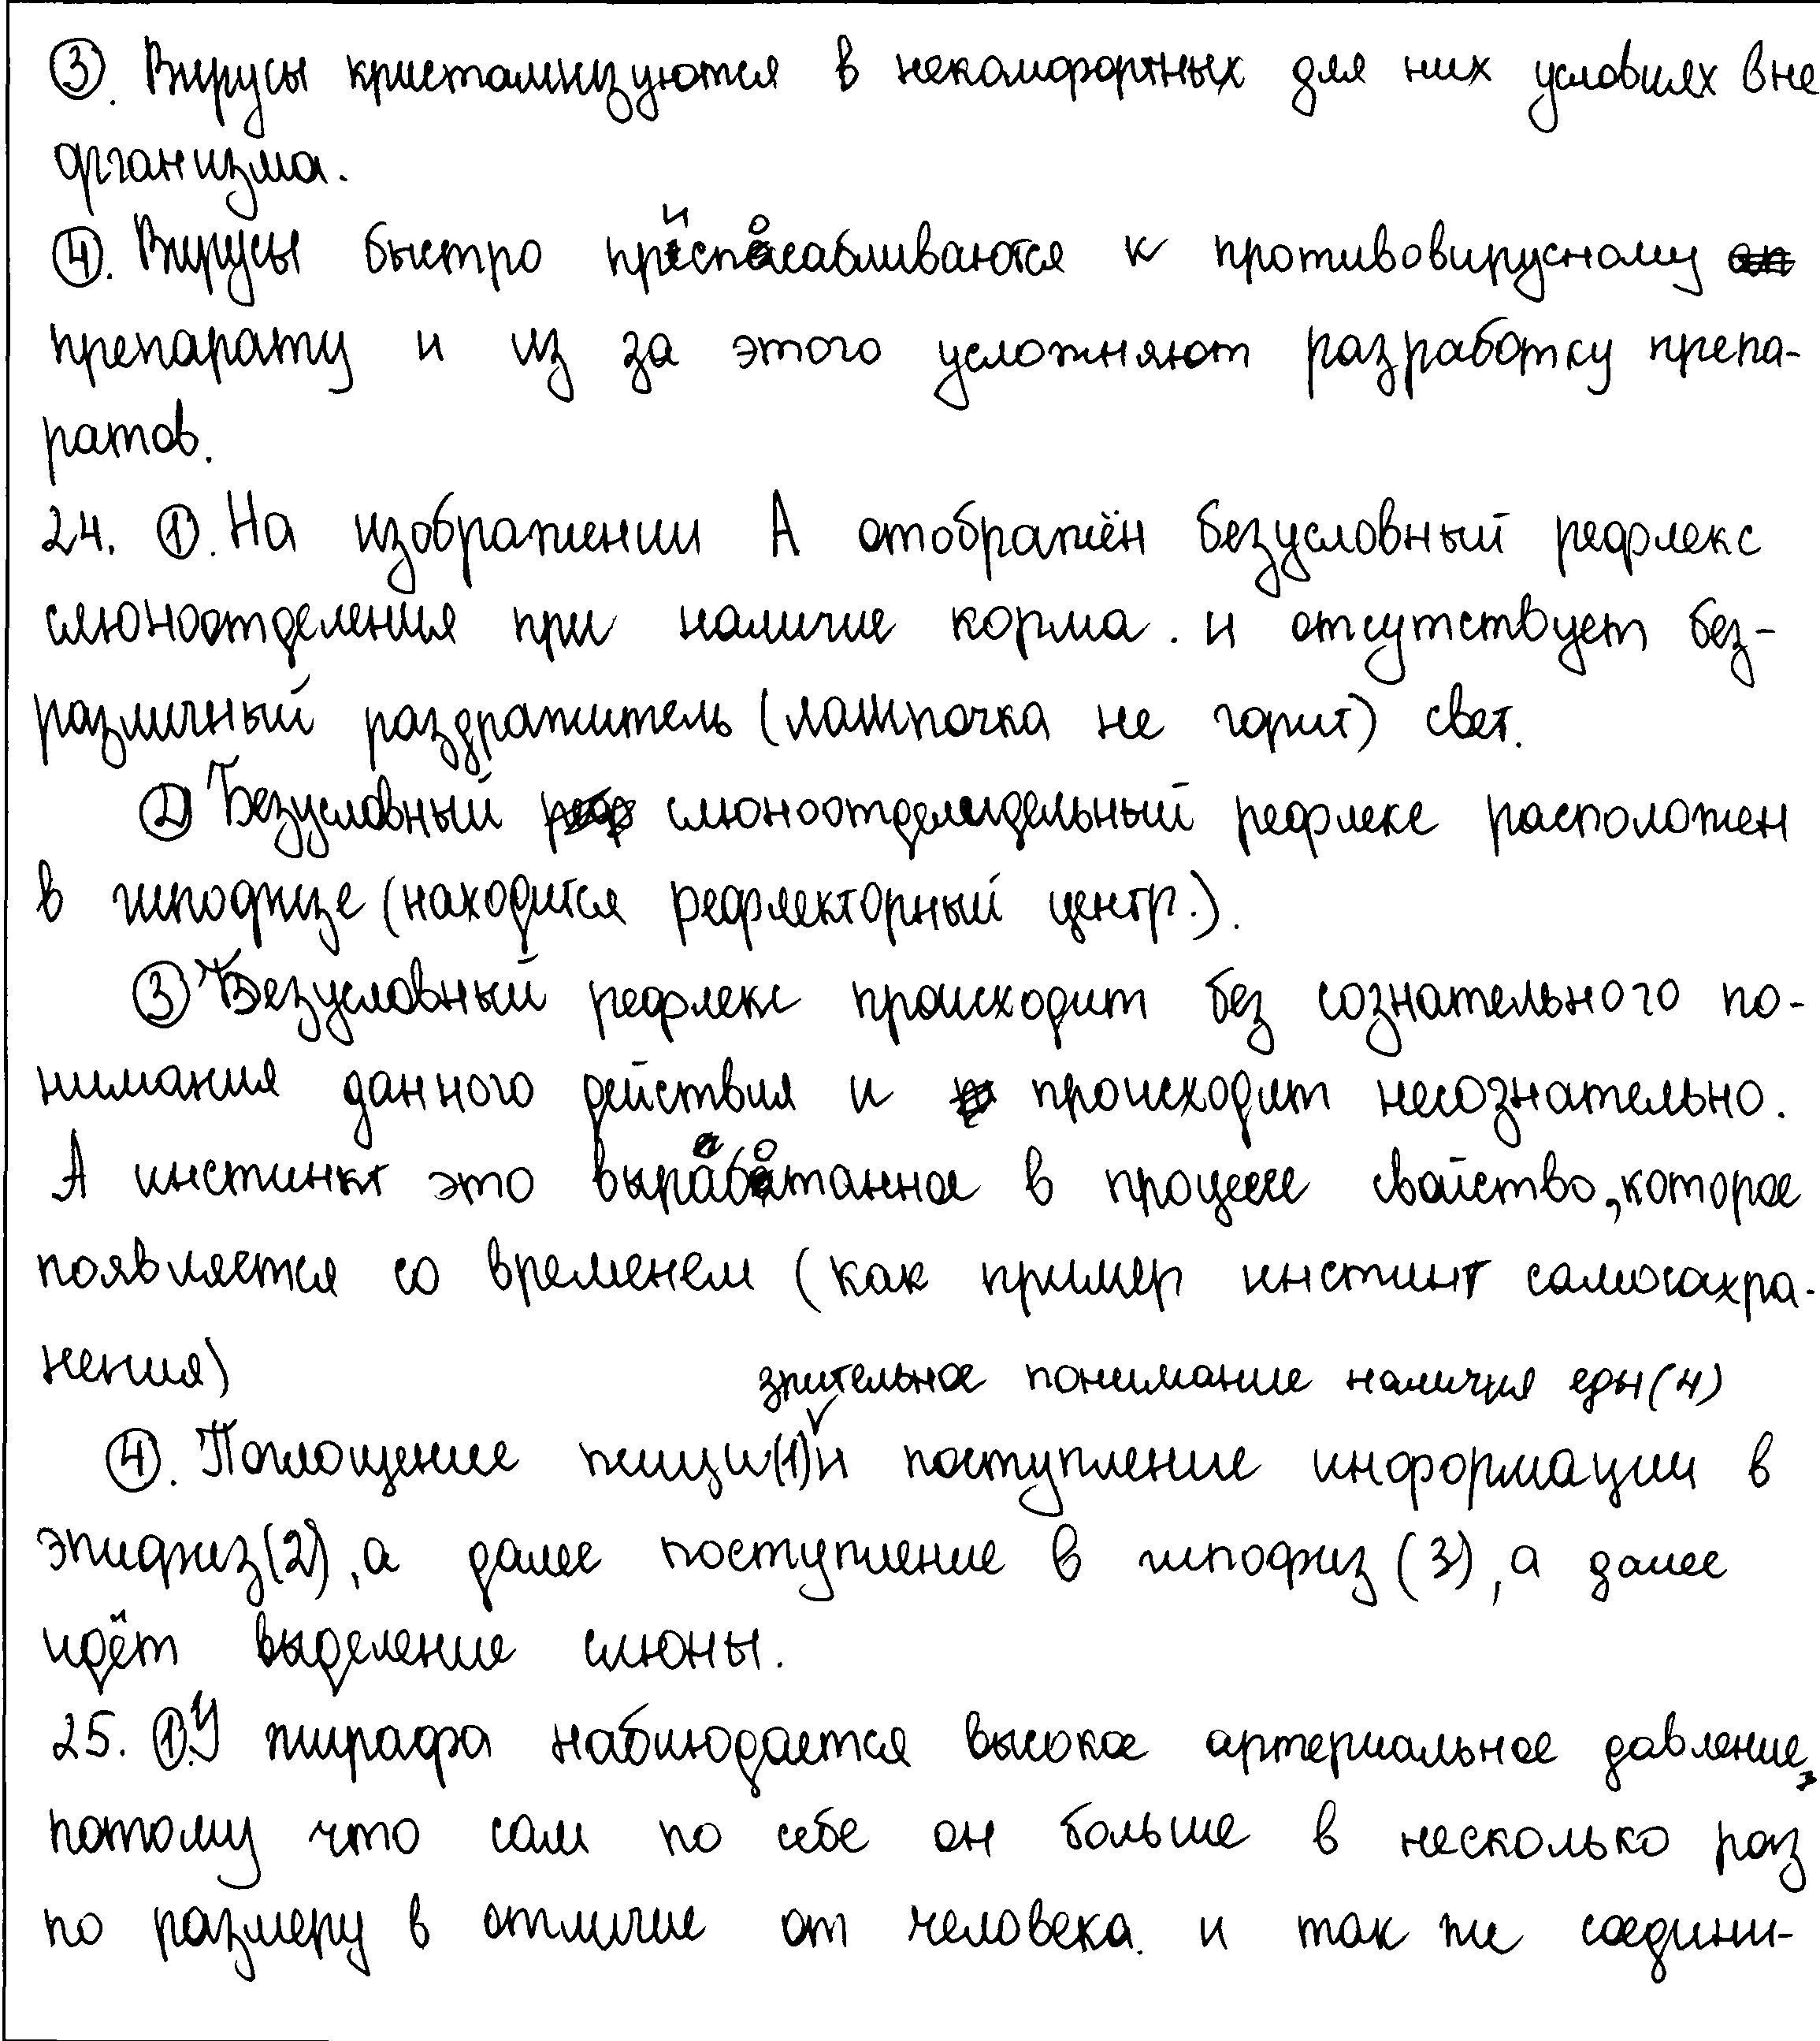 ③. Вирусы кристализуются в некомфортных для них условиях вне
организма.
④. Вирусы быстро приспосабливаются к противовирусному
препарату и из за этого усложняют разработку препа-
ратов.
24. ①. На изображении А отображён безусловный рефлекс
слюноотделения при наличие корма. и отсутствует без-
различный раздражитель (лампочка не горит) свет.
② Безусловный слюноотделидельный рефлекс расположен
в гипофизе (находится рефлекторный центр.).
③ Безусловный рефлекс происходит без сознательного по-
нимания данного действия и происходит несознательно.
А инстинкт это выработанное в процессе свойство, которое
появляется со временем (как пример инстинт самосахра-
нения)
зрительное понимание наличия еды (4)
④. Поглощение пищи (1) и поступление информации в
эпифиз (2), а далее поступление в гипофиз (3), а далее
идёт выделение слюны.
25. ①. У жирафа наблюдается высокое артериальное давление,
потому что сам по себе он больше в несколько раз
по размеру в отличие от человека. и так же соедини-